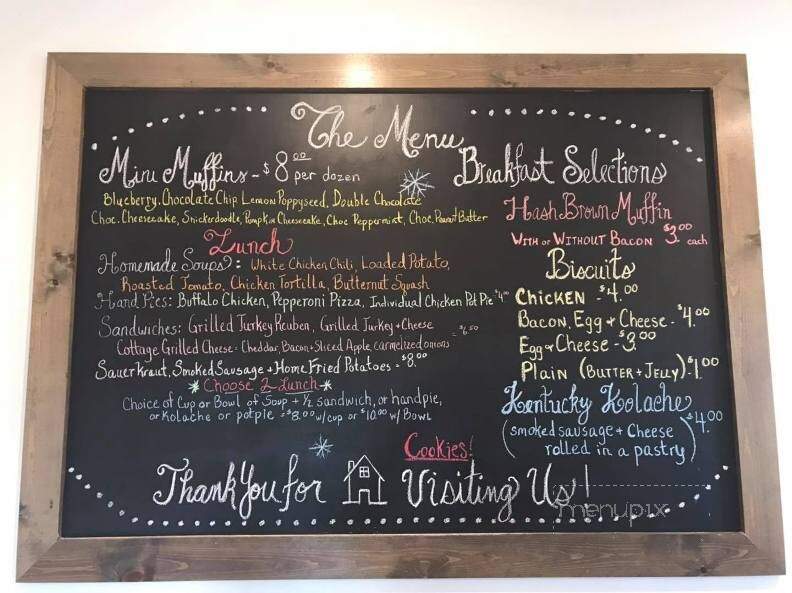 The Menu
Mini Muffins - $8.00 per dozen
Blueberry, Chocolate Chip Lemon Poppyseed, Double Chocolate
Choc. Cheesecake, Snickerdoodle, Pumpkin Cheesecake, Choc Peppermint, Choc. Peanut Butter
Lunch
Homemade Soups: White Chicken Chili, Loaded Potato,
Roasted Tomato, Chicken Tortilla, Butternut Squash
Hand Pies: Buffalo Chicken, Pepperoni Pizza, Individual Chicken Pot Pie $4.00
Sandwiches: Grilled Turkey Reuben, Grilled Turkey + Cheese
Cottage Grilled Cheese - Cheddar, Bacon + Sliced Apple, Carmelized onions - $6.50
Sauerkraut, Smoked Sausage + Home Fried Potatoes - $8.00
Choose 2 Lunch
Choice of Cup or Bowl of Soup + 1/2 sandwich, or handpie,
or Kolache or potpie - $8.00 w/cup or $10.00 w/Bowl
Breakfast Selections
Hash Brown Muffin
With or Without Bacon $3.00 each
Biscuits
Chicken - $4.00
Bacon, Egg + Cheese - $4.00
Egg + Cheese - $3.00
Plain (Butter + Jelly) - $1.00
Kentucky Kolache
(smoked sausage + Cheese
rolled in a pastry) $4.00
Cookies!
Thank You for Visiting Us!
menupix